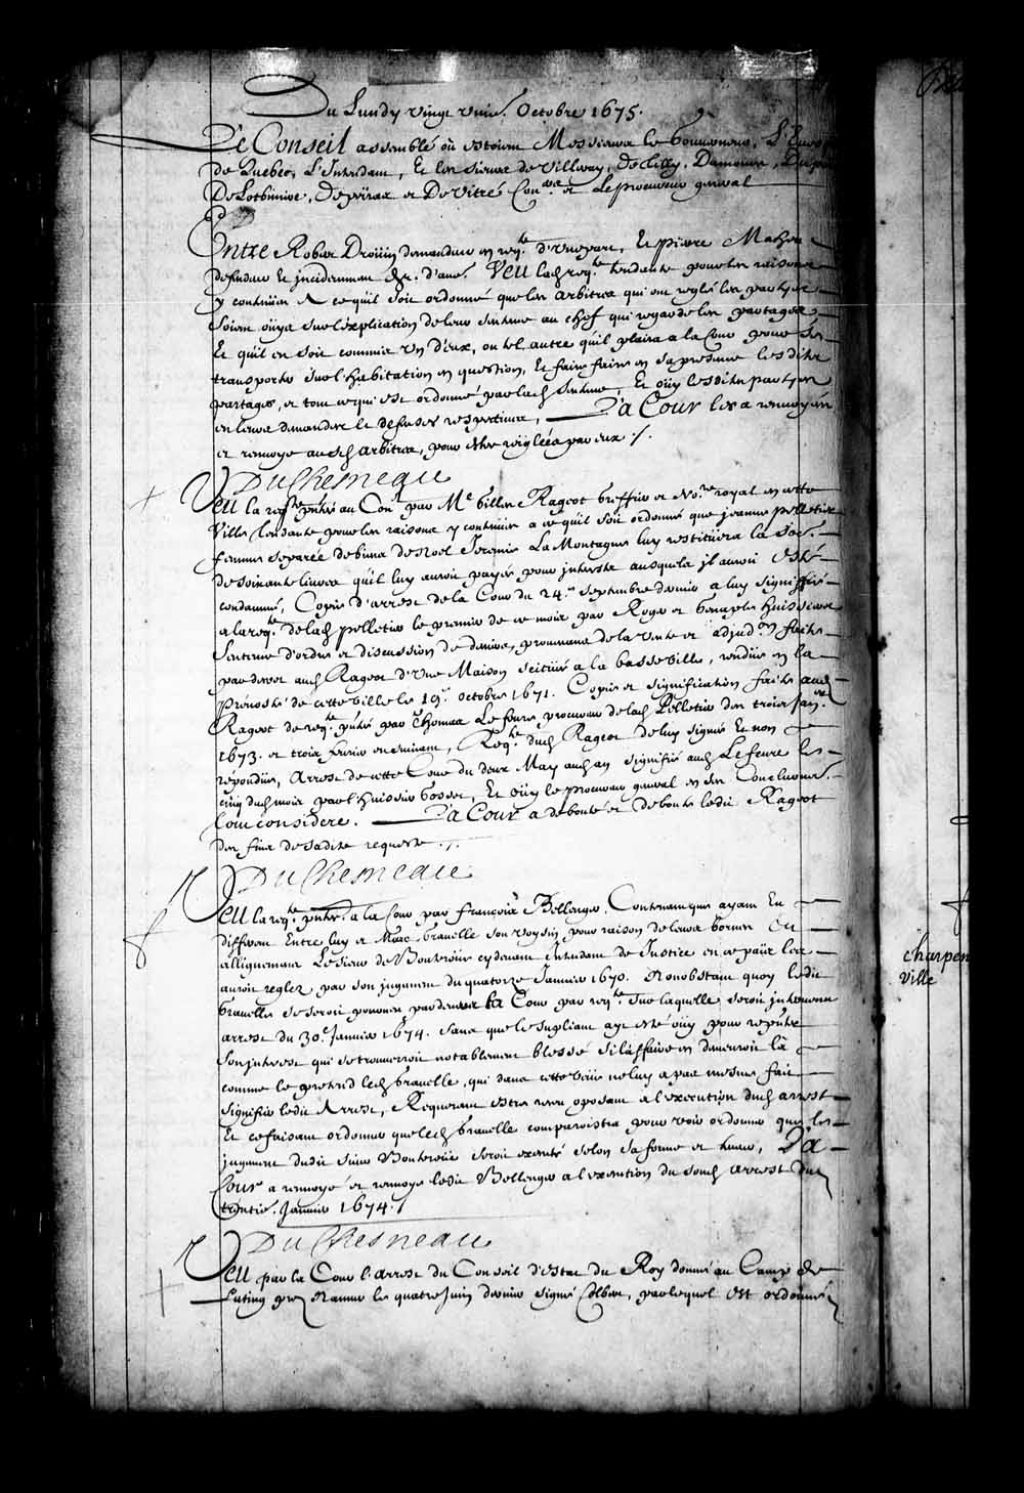 Du Lundy vingt unie. Octobre 1675.
Le Conseil assemblé où estoient Messieurs le Gouverneur, L'Eves
de Quebec, L'Intendant, Et les sieurs de Villeray, de Tilly, Damours, Dupo
De Lotbiniere, de peiras et De Vitré Coners et Le procureur general
Entre Robert Droüin demandeur en reqte. d'Une part, Et pierre Mahe
defendeur Et incidemment &c. d'autre. Veu lad reqte. tendante pour les raisons
y contenües A ce qu'il soit ordonné que les arbitres qui ont reglé les partyes
soient oüys sur l'explication de leur sentence au chef qui regarde les partages
Et qu'il en soit commis un d'eux, ou tel autre qu'il plaira a la Cour pour se
transporter sur l'habitation en question, Et faire faire en sa presence lesdits
partages, et tout ce qui est ordonné par lad sentence, Et oüy lesdites partyes
en leurs demandes Et defenses respectives, La Cour les a renvoyées
et renvoye ausd arbitres, pour estre reigléés par eux ./.
DuChesneau
Veu la reqte pntée au Conl par Me Gilles Rageot Greffier et Nore royal en cette
Ville tendante pour les raisons y contenües a ce qu'il soit ordonné que jeanne pelletier
femme separée de biens de Noel Jeremie La Montagne luy restitüera la soe.
de soixante livres qu'il luy auroit payée pour interests ausquels il auroit esté
condamné, Copie d'arrest de la Cour du 24e septembre dernier a luy signiffié
a la reqte. de lad pelletier le premier de ce mois par Roger et Genaple huissiers
Sentence d'ordre et discussion de deniers, provenans de la vente et adjudon faite
par devant aud Rageot d'Une Maison scitüée a la basse ville, rendüe en la
prevosté de cette ville le 19e octobre 1671. Copie et signification faite aud
Rageot de reqte pntée par Thomas Lefeuvre procureur de lad Pelletier des trois janer
1673. et trois fevrier ensuivant, Reqte dud Rageot de luy signée Et non
répondüe, Arrest de cette Cour du deux May aud an signifié aud Lefeuvre le
cinq dud mois par l'huissier Gosset, Et oüy le procureur general en ses Conclusions.
Tout consideré. La Cour a debouté et deboute ledit Rageot
des fins de sadite requeste ./.
DuChesneau
Veu la reqte. pntée. a la Cour par françois Bellenger. Contenant que ayant Eu
different Entre luy et Mare Gravelle son voysin pour raison de leurs bornes Et
allignemens Le sieur de Boutroüe cy devant Intendant de Justice en ce païs les
auroit reglez par son jugement du quatorze Janvier 1670. Nonobstant quoy ledit
Gravelle se seroit pourveu par devant la Cour par reqte sur laquelle seroit intervenu
arrest du 30e Janvier 1674. sans que le supliant aye esté oüy pour repnter
son interest qui se trouveroit notablement blessé si l'affaire en demeuroit là
comme le pretend led Gravelle, qui dans cette veüe ne luy a pas mesme fait
signifier ledit Arrest, Requerant estre receu oposant a l'execution dud arrest
Et ce faisant ordonner que led Gravelle comparoistra pour voir ordonner que le
jugement dudit sieur Boutroüe seroit executé selon sa forme et teneur, La
Cour a renvoyé et renvoye ledit Bellenger a l'execution du susd arrest du
trentie. Janvier 1674./
DuChesneau
Veu par la Cour l'arrest du Conseil d'estat du Roy donné au Camp de
Luting prez Namur le quatre juin dernier signé Colbert, par lequel est ordonné
charpen
ville